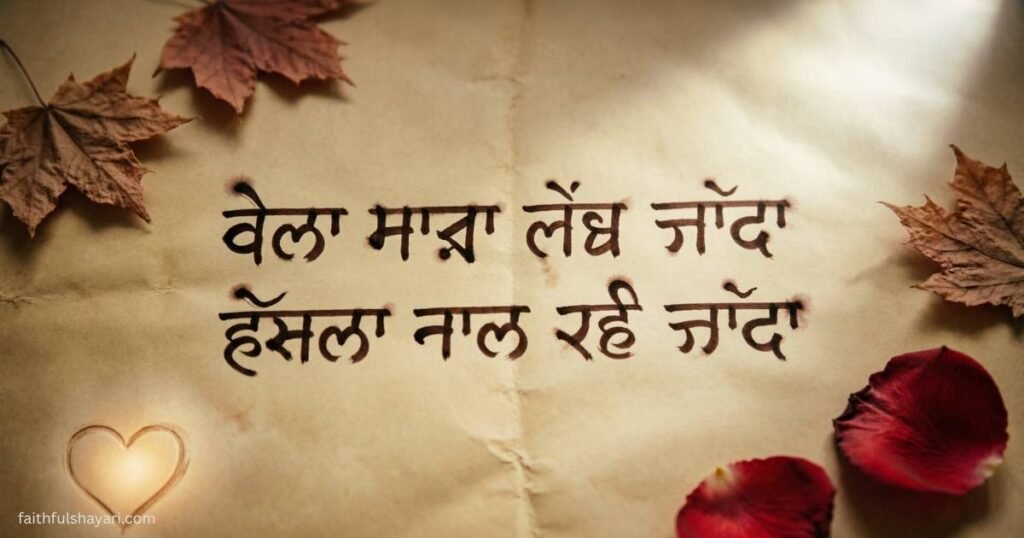 ਵੇਲਾ ਮਾੜਾ ਜਾੱਦਾ
ਹੱਸਲਾ ਨਾਲ ਜਾੱਦਾ
faithfulshayari.com